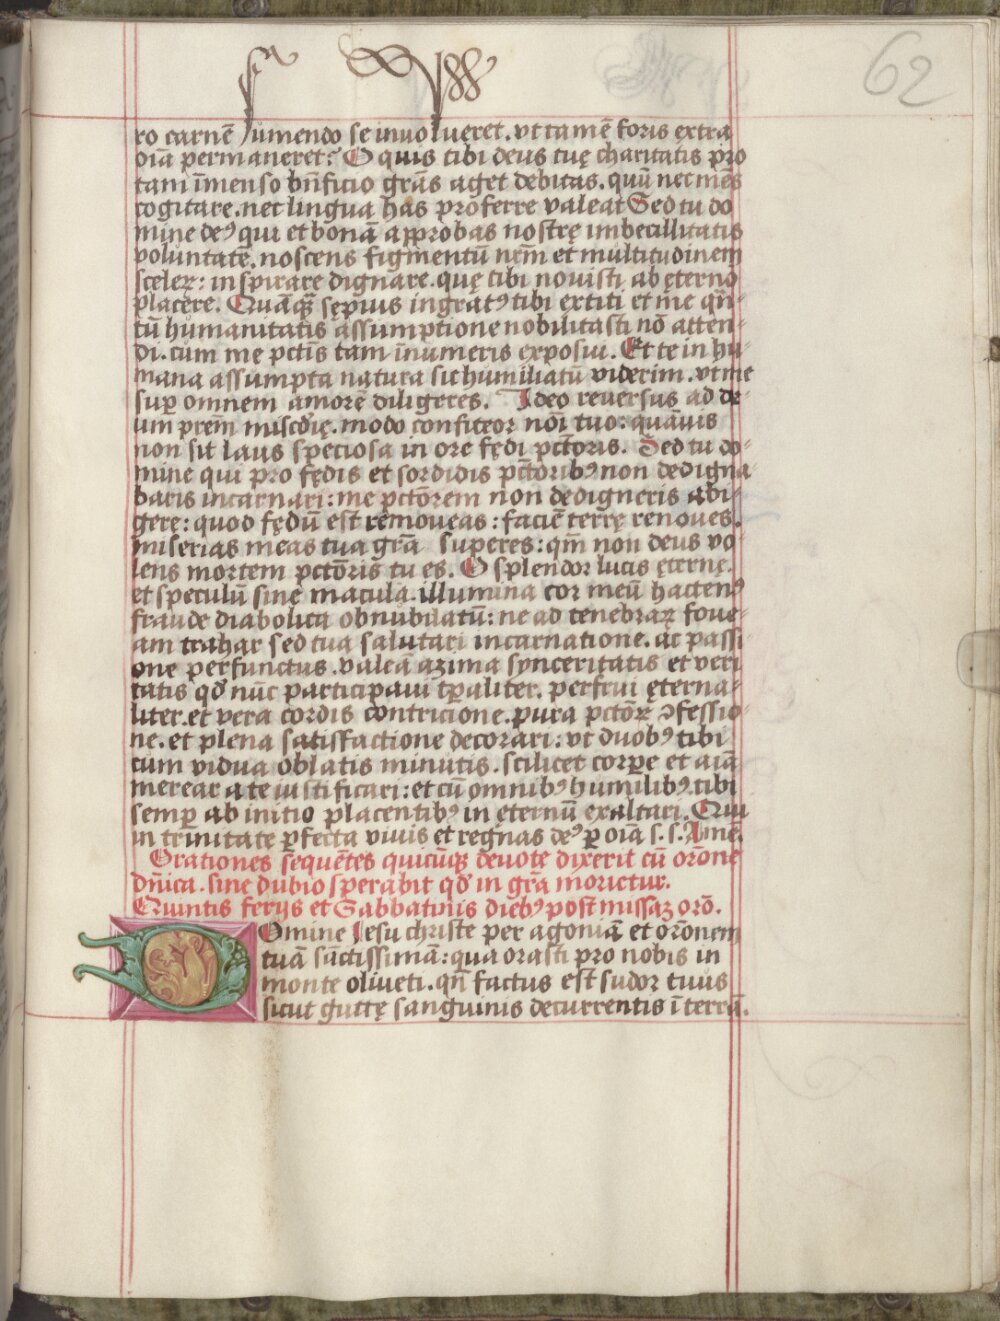 62
ro carnē sumendo se inuolueret. vt tamē foris extra
oīa permaneret? O quis tibi deus tuę charitatis pro
tam īmenso bn̄ficio grās aget debitas. quū nec mēs
cogitare. nec lingua has proferre valeat Sed tu do
mine deꝰ qui et bonā approbas nostrę imbecillitatis
voluntatē. noscens figmentū nr̄m et multitudinem
scelerꝝ: inspirare dignare. quę tibi nouisti ab ęterno
placere. Quāqꝫ sępius ingratꝰ tibi extiti et me qn̄-
tū humanitatis assumptione nobilitasti nō atten-
di. cum me pctīs tam īnumeris exposui. Et te in hu-
mana assumpta natura sic humiliatū viderim. vt me
suꝑ omnem amorē diligeres. Ideo reuersus ad de-
um prēm miscdīę. modo confiteor nōī tuo: quāuis
non sit laus speciosa in ore fędi pctōris. Sed tu do-
mine qui pro fędis et sordidis pctōribꝰ non dedigna-
baris incarnari: me pctōrem non dedigneris abi-
gere: quod fędū est remoueas: faciē terrę renoues.
miserias meas tua grā superes: qm̄ non deus vo-
lens mortem pctōris tu es. O splendor lucis ęternę.
et speculū sine macula. illumina cor meū hactenꝰ
fraude diabolica obnubilatū: ne ad tenebraꝝ foue-
am trahar sed tua salutari incarnatione. ac passi
one perfunctus. valeā azima synceritatis et veri
tatis qđ nūc participaui tꝑaliter. perfrui ęterna-
liter. et vera cordis contricione. pura pctōꝝ ꝯfessio-
ne. et plena satisfactione decorari: vt duobꝰ tibi
cum vidua oblatis minutis. scilicet corꝑe et aīa
merear a te iustificari: et cū omnibꝰ humilibꝰ tibi
semꝑ ab initio placentibꝰ in ęternū exaltari. Qui
in trinitate ꝑfecta viuis et regnas deꝰ ꝑ oīa s. s. Amē.
Orationes sequētes quicūqꝫ deuote dixerit cū orōne
dn̄ica. sine dubio sperabit qđ in grā morietur.
Quintis ferijs et Sabbatinis diebꝰ post missaꝫ orō.
Domine Iesu christe per agoniā et orōnem
tuā sāctissimā: qua orasti pro nobis in
monte oliueti. qn̄ factus est sudor tuus
sicut guttę sanguinis decurrentis ī terrā.